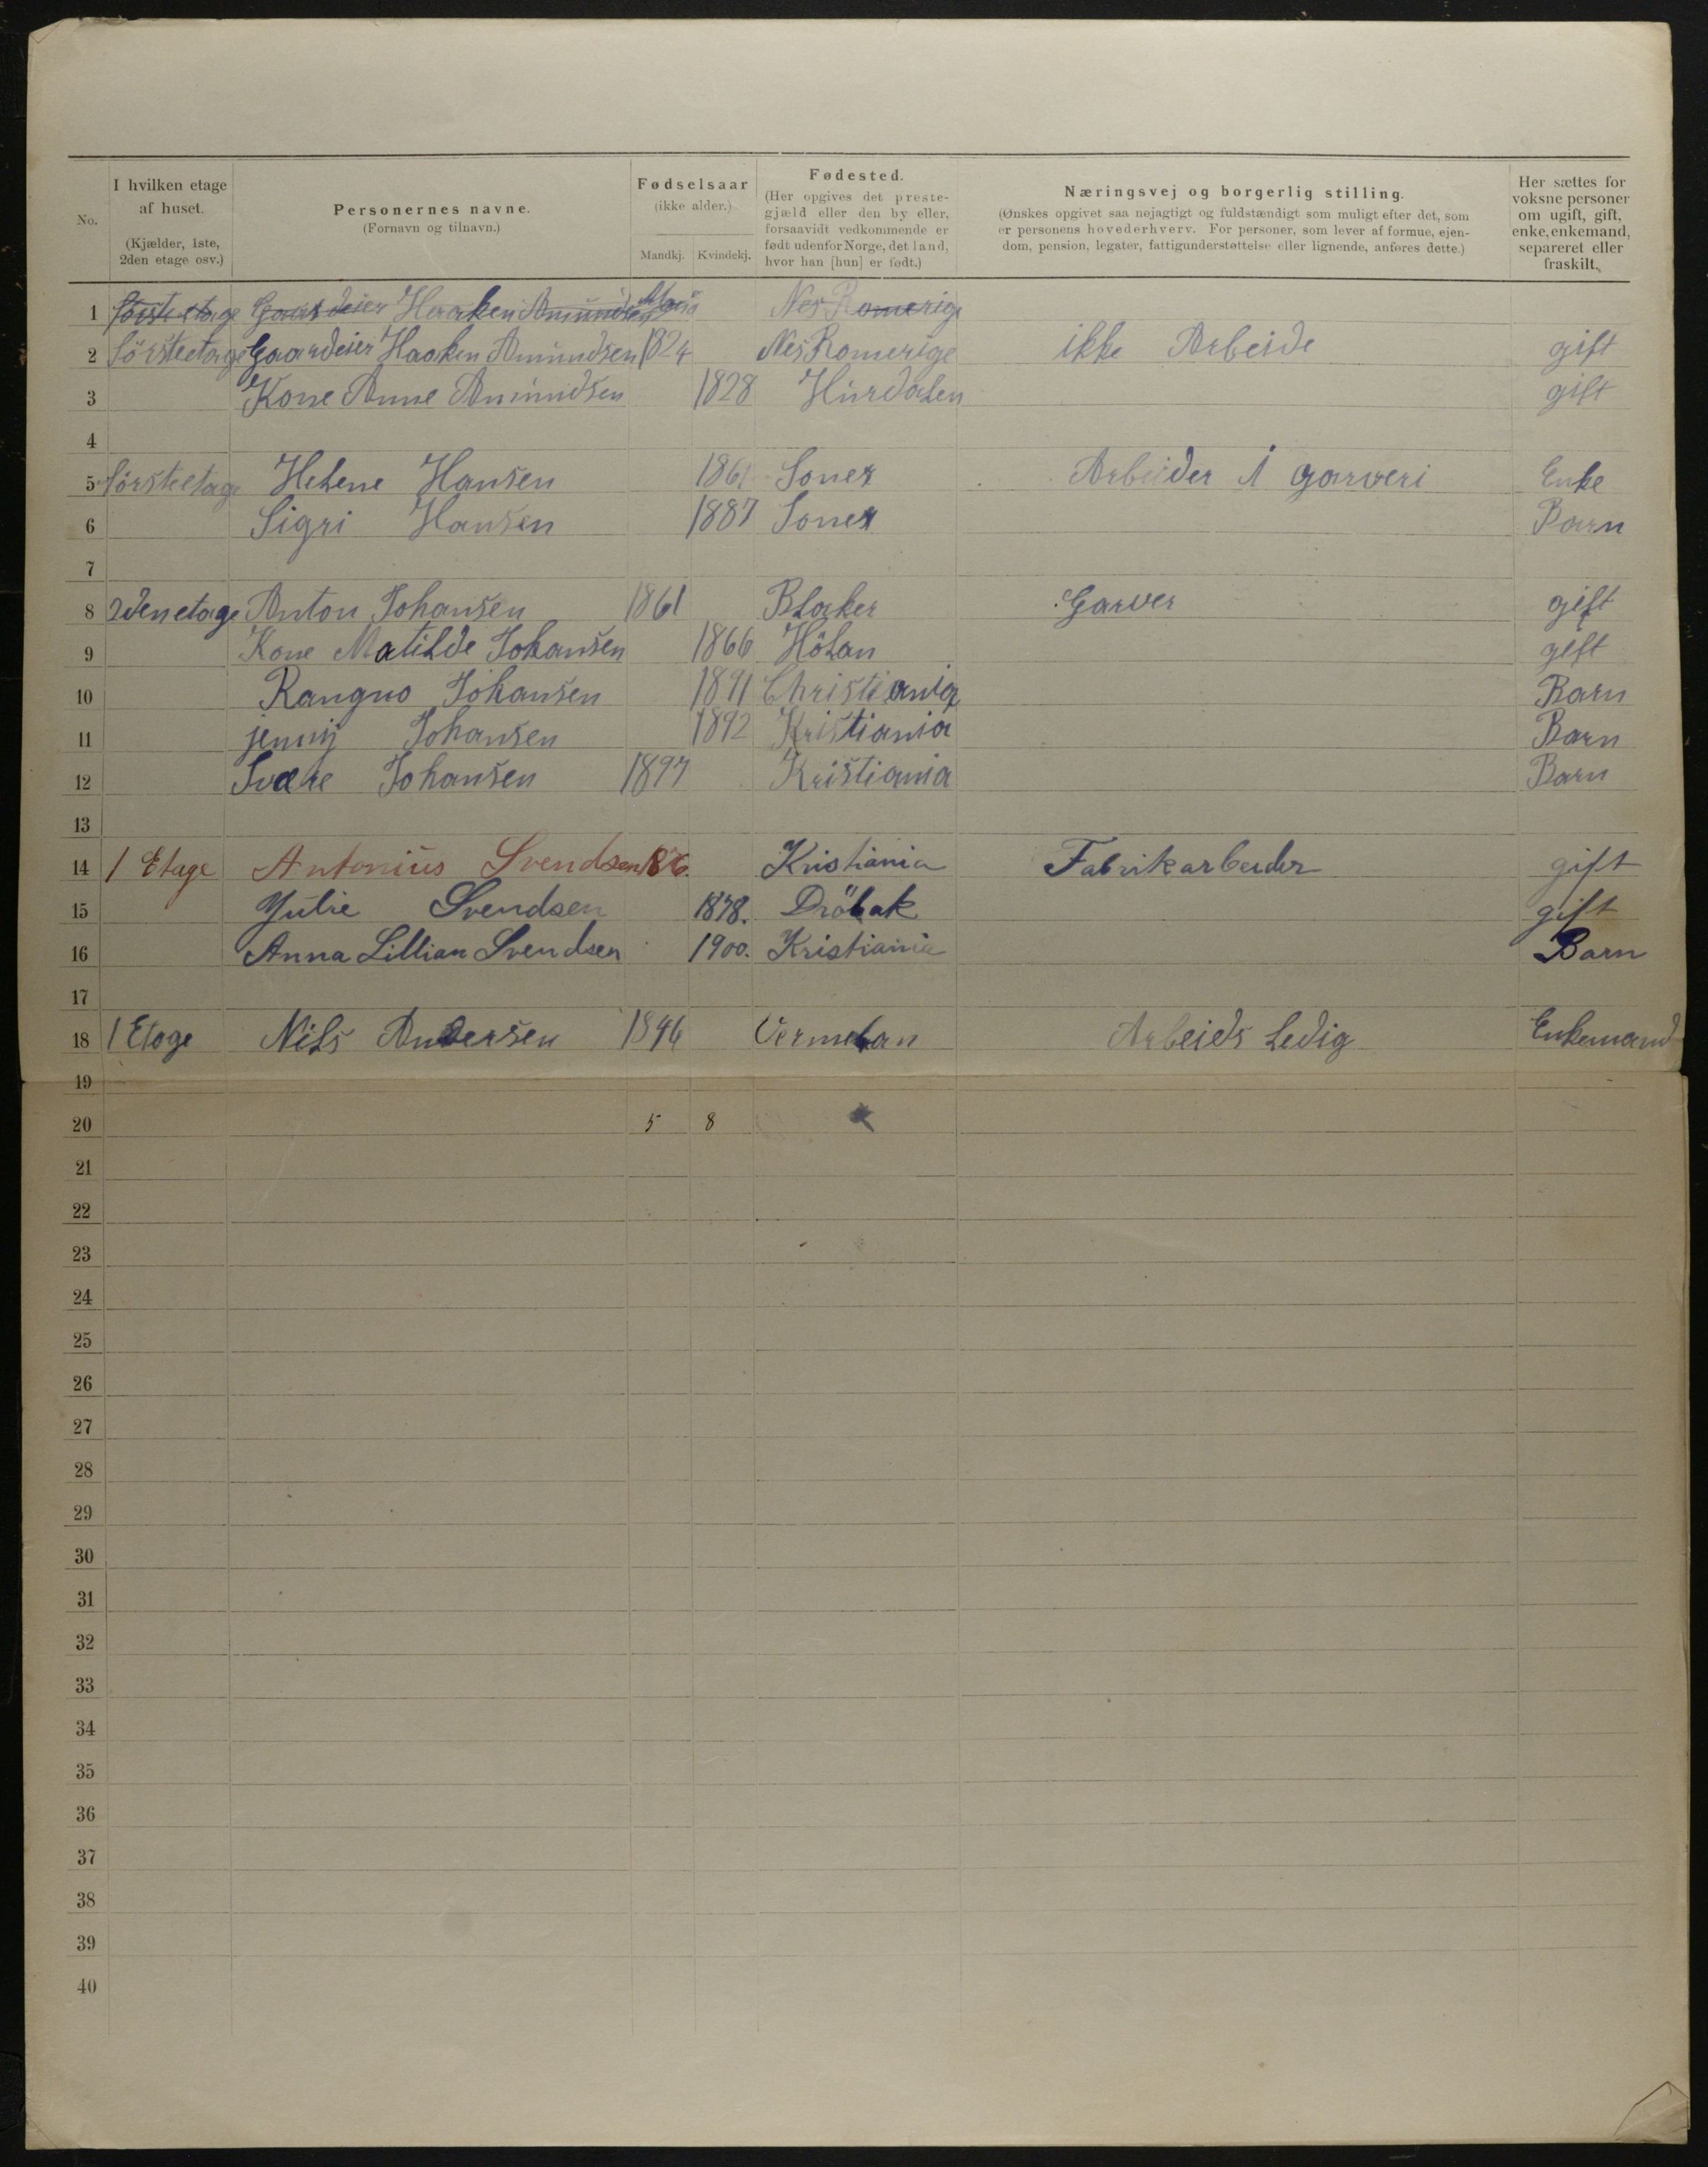 No.
I hvilken etage af huset. (Kjælder, 1ste, 2den etage osv.)
Personernes navne. (Fornavn og tilnavn.)
Fødselsaar (ikke alder.) Mandkj. Kvindekj.
Fødested. (Her opgives det prestegjæld eller den by eller, forsaavidt vedkommende er født udenfor Norge, det land, hvor han [hun] er født.)
Næringsvej og borgerlig stilling. (Ønskes opgivet saa nøjagtigt og fuldstændigt som muligt efter det, som er personens hovederhverv. For personer, som lever af formue, ejendom, pension, legater, fattigunderstøttelse eller lignende, anføres dette.)
Her sættes for voksne personer om ugift, gift, enke, enkemand, separeret eller fraskilt.
1 försteetage Gaardeier Haaken Amundsen Nes Romerige
2 försteetage Gaardeier Haaken Amundsen 1824 Nes Romerige ikke Arbeide gift
3 Kone Anne Amundsen 1828 Hurdalen gift
4
5 försteetage Helene Hansen 1861 Soner Arbeider i garveri Enke
6 Sigri Hansen 1887 Soner Barn
7
8 2denetage Anton Johansen 1861 Blaker Garver gift
9 Kone Matilde Johansen 1866 Hölan gift
10 Rangno Johansen 1891 Christiania Barn
11 jenny Johansen 1892 Kristiania Barn
12 Svære Johansen 1897 Kristiania Barn
13
14 1 Etage Antonius Svendsen 1876. Kristiania Fabrikarbeider gift
15 Julie Svendsen 1878. Dröbak gift
16 Anna Lillian Svendsen 1900. Kristiania Barn
17
18 1 Etage Nils Andersen 1846 Vermelan Arbeids Ledig Enkemand
19
20 5 8
21
22
23
24
25
26
27
28
29
30
31
32
33
34
35
36
37
38
39
40